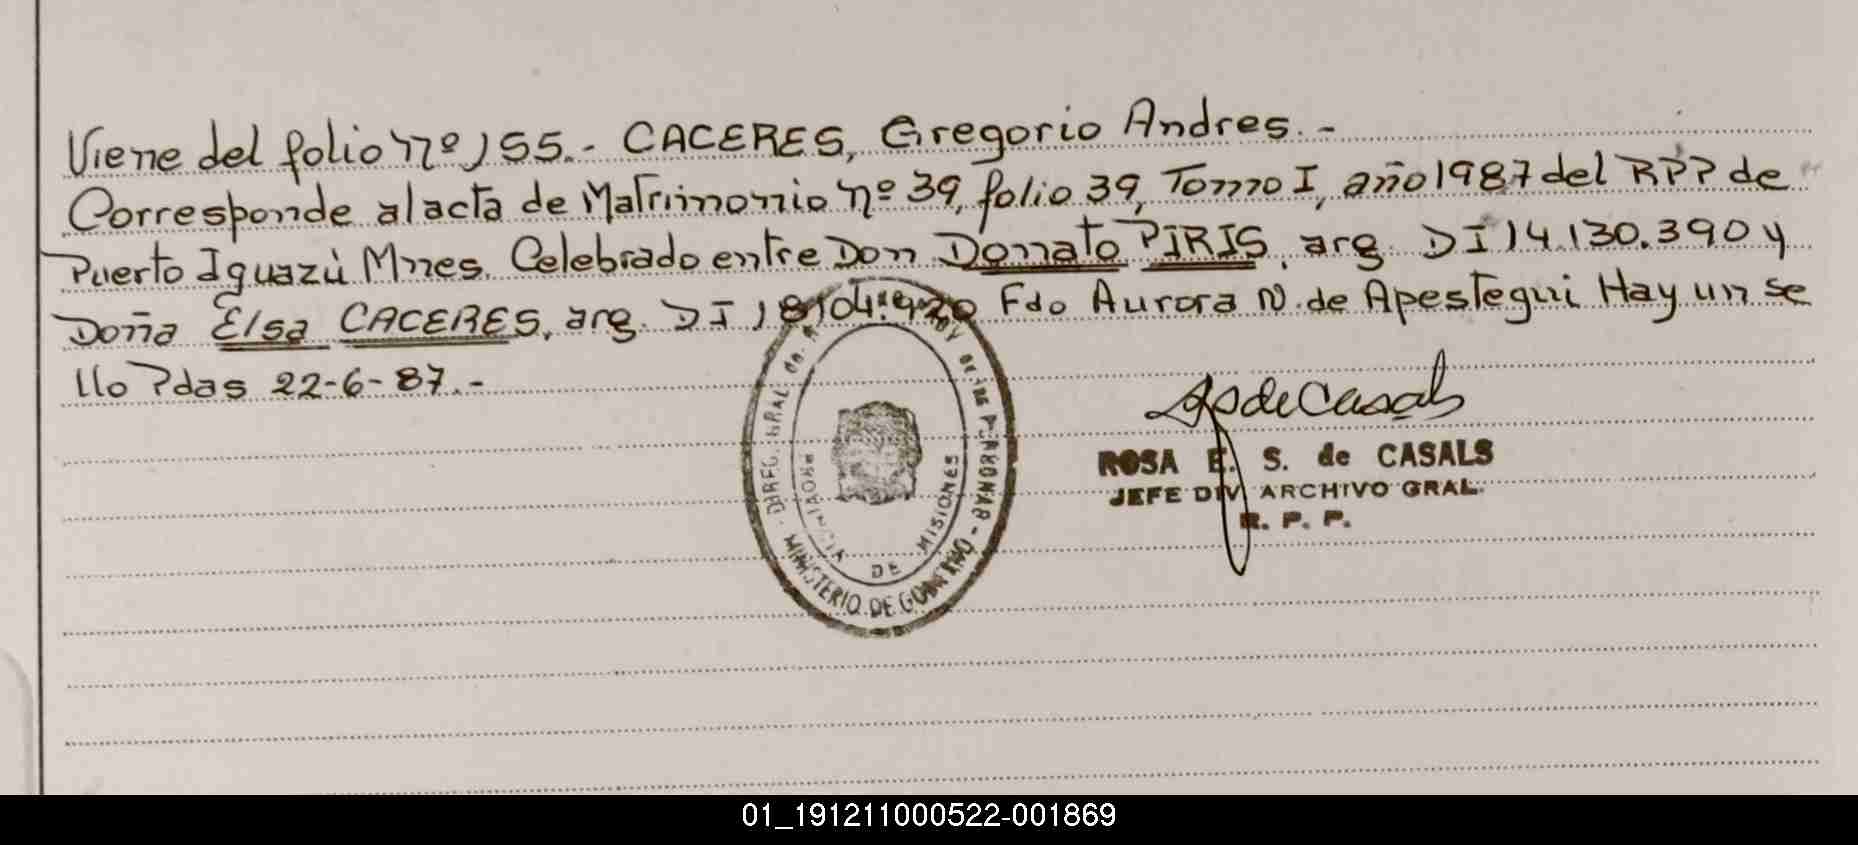 Viene del folio nº 155.- CACERES, Gregorio Andres.-
Corresponde al acta de Matrimonio nº 39, folio 39, Tomo I, año 1987 del RPP de
Puerto Iguazú Mnes. Celebrado entre Don Donato PIRIS, arg. DI 14.130.390 y
Doña Elsa CACERES, arg. DI 18.104.920 Fdo Aurora N. de Apestegui Hay un se
llo Pdas 22-6-87.-
DIREC. GRAL de las PERSONAS -
MINISTERIO DE GOBIERNO
PROVINCIA DE MISIONES
de Casals
ROSA E. S. de CASALS
JEFE DIV ARCHIVO GRAL.
R. P. P.
01_191211000522-001869